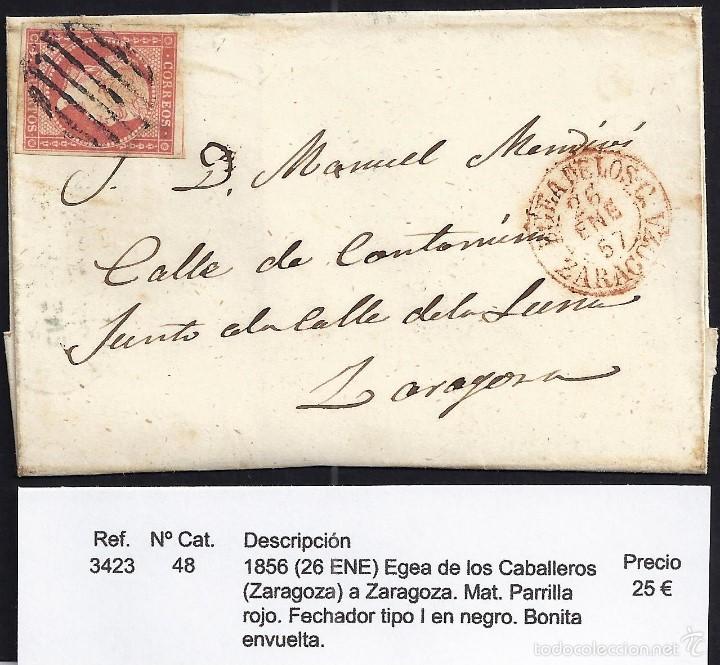 CORREOS
S. D. Manuel Mendivi
EGEA DE LOS C.
26
ENE
57
ZARAGOZA
Calle de Contamina
Junto a la Calle de la Luna
Zaragoza
Ref. Nº Cat. Descripción Precio
3423 48 1856 (26 ENE) Egea de los Caballeros 25 €
(Zaragoza) a Zaragoza. Mat. Parrilla
rojo. Fechador tipo I en negro. Bonita
envuelta.
todocoleccion.net